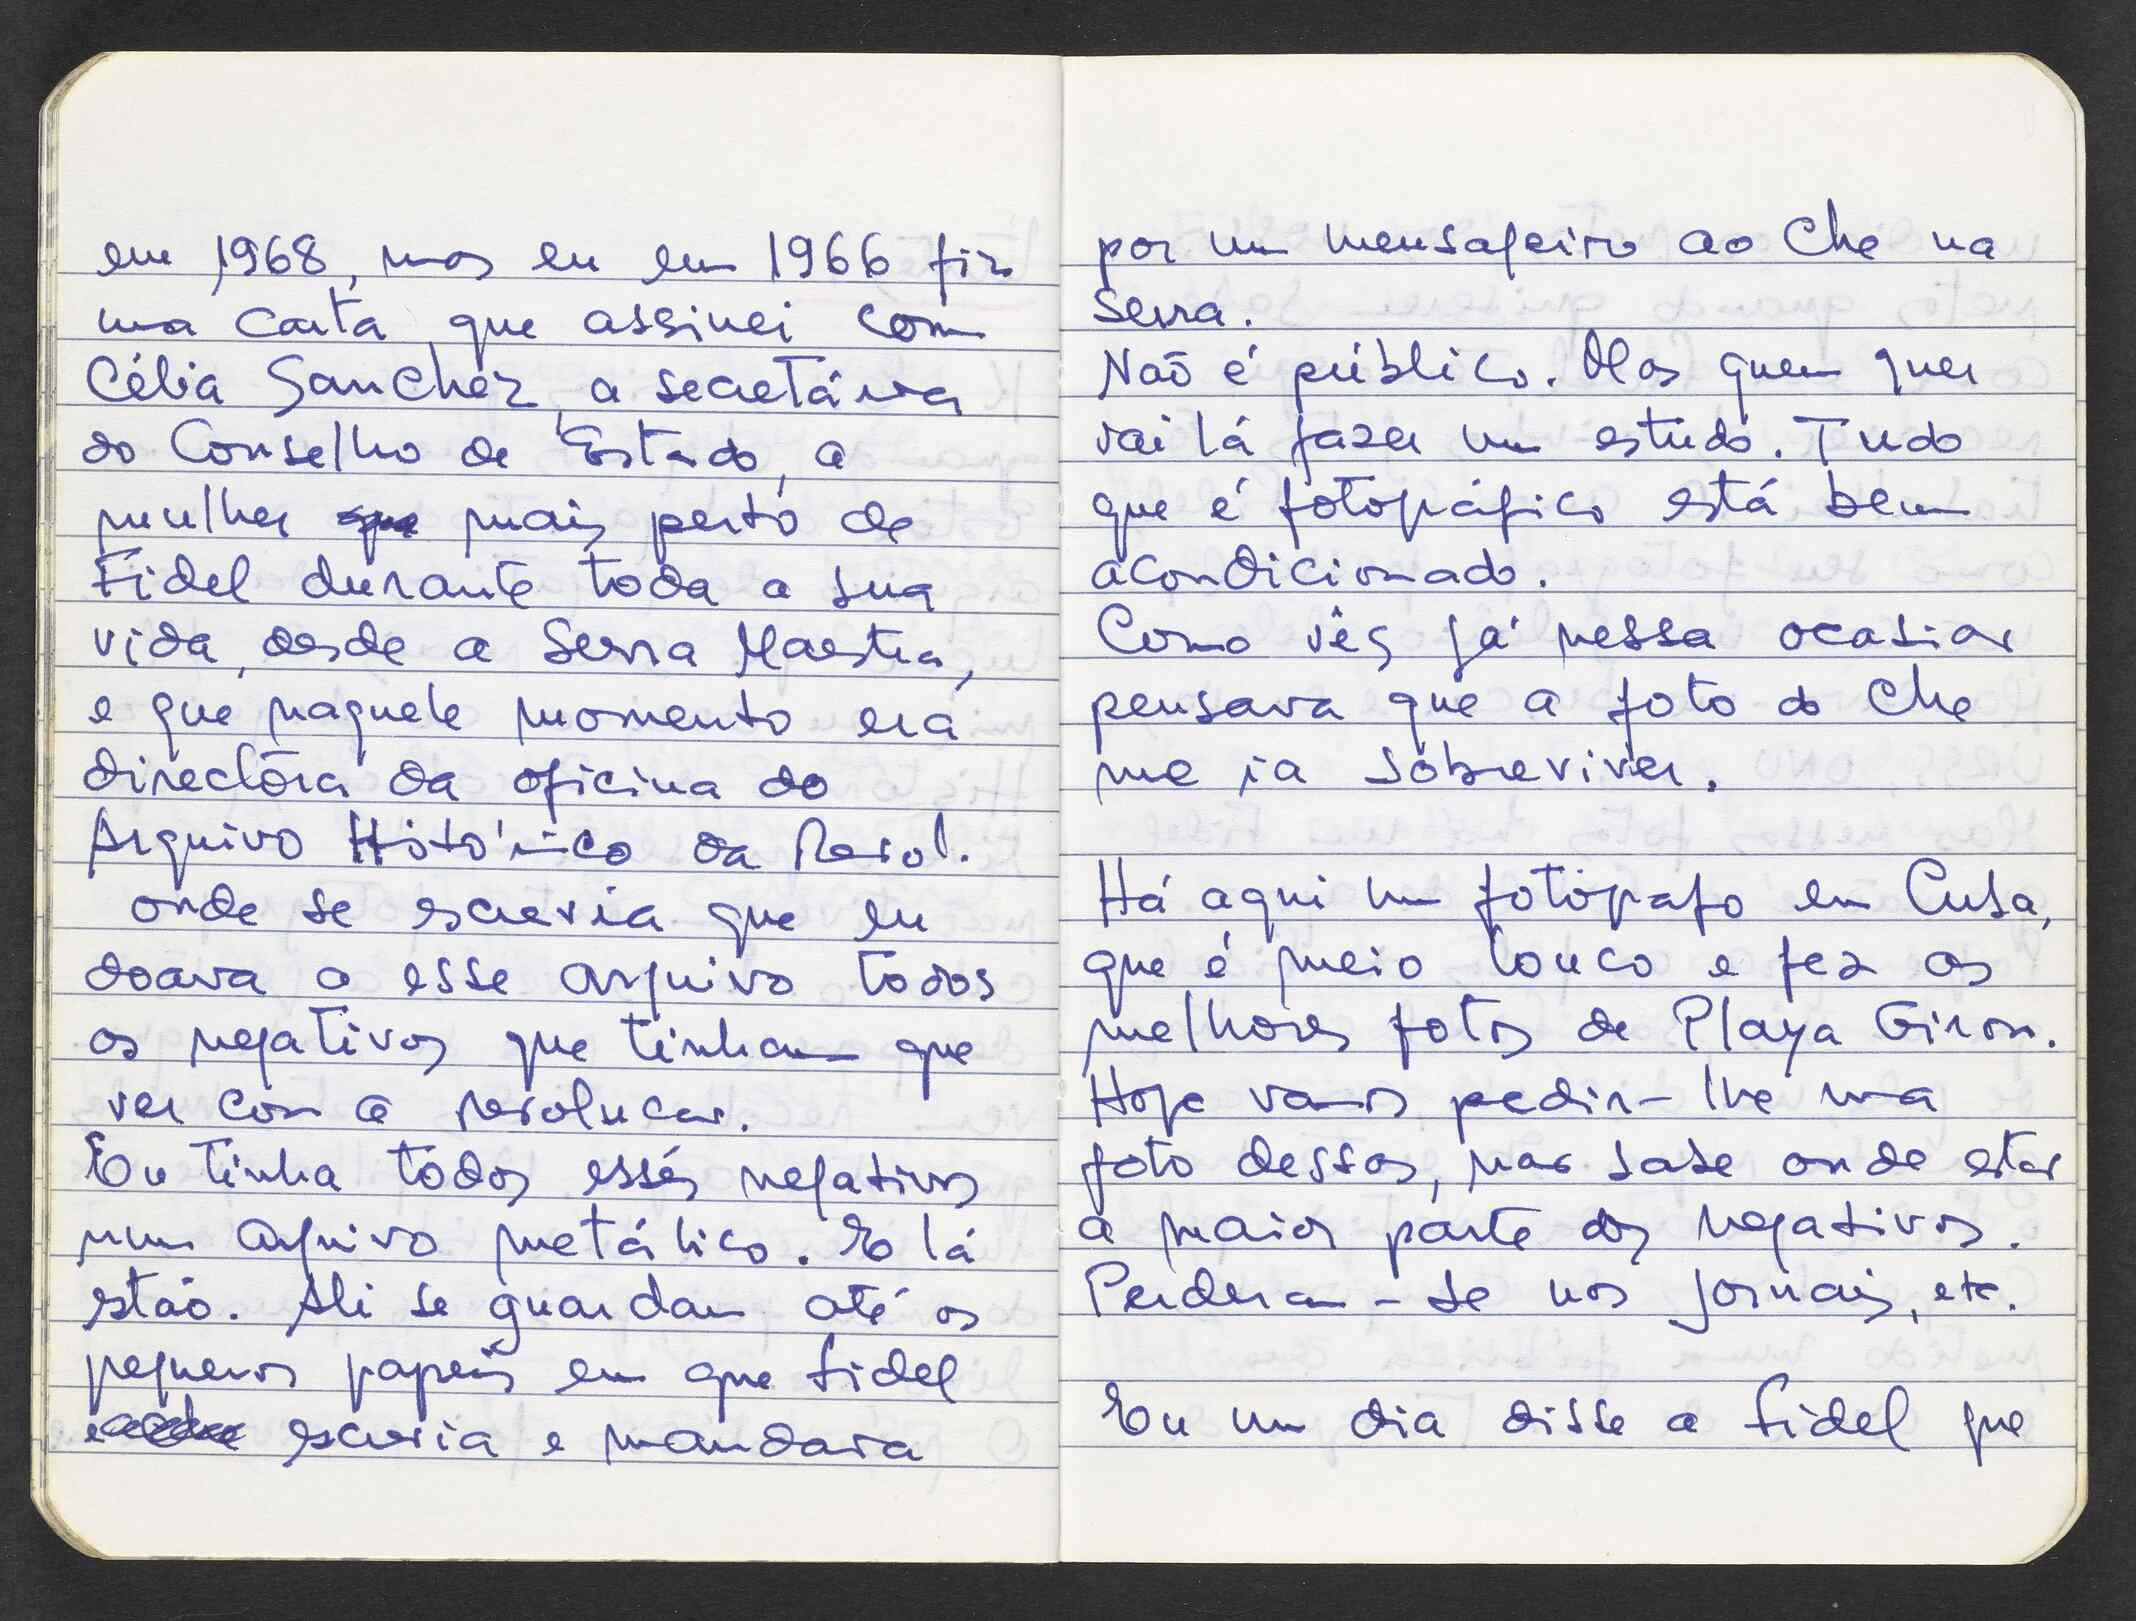 em 1968, mas eu em 1966 fiz
uma carta que assinei com
Célia Sanchez, a secretária
do Conselho de Estado, a
mulher que mais perto de
Fidel durante toda a sua
vida, desde a Serra Maestra,
e que naquele momento era
directora da oficina do
Arquivo Histórico da Revol.
onde se escrevia que eu
doava a esse arquivo todos
os negativos que tinham que
ver com a revolucao.
Eu tinha todos esses negativos
num arquivo metálico. E lá
estão. Ali se guardam até os
pequenos papeis em que Fidel
escrevia e mandava
por um mensageiro ao Che na
Serra.
Não é público. Mas quem quer
vai lá fazer um estudo. Tudo
que é fotográfico está bem
acondicionado.
Como vês já nessa ocasiao
pensava que a foto do Che
me ia sobreviver.
Há aqui um fotógrafo em Cuba,
que é meio louco e fez as
melhores fotos de Playa Giron.
Hoje vamos pedir-lhe uma
foto dessas, mas sabe onde estao
a maior parte dos negativos.
Perderam-se nos jornais, etc.
Eu um dia disse a Fidel que